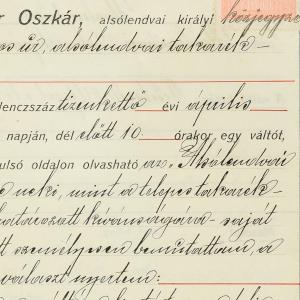 r Oszkár, alsólendvai királyi közjegyző
os úr, alsólendvai takarék-
lenczszáz tizenkettő évi április
napján, dél előtt 10. órakor egy váltót,
tulsó oldalon olvasható az "Alsólendvai
neki, mint a telepes takarék-
határozott kivánságára - saját
tt személyesen bemutattam, a
választ nyertem: